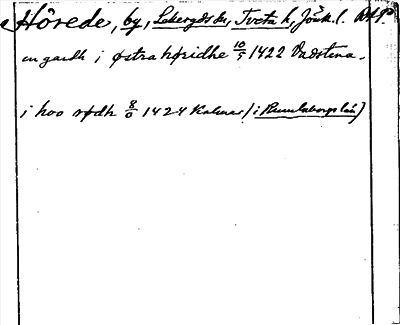 Hörede, by, Lekeryds sn, Tveta h, Jönk. l.
en gardh i østra høridhe 10/5 1422 Vadstena.
i hoo rødh 8/0 1424 Kalmar (i Rumlaborgs län)